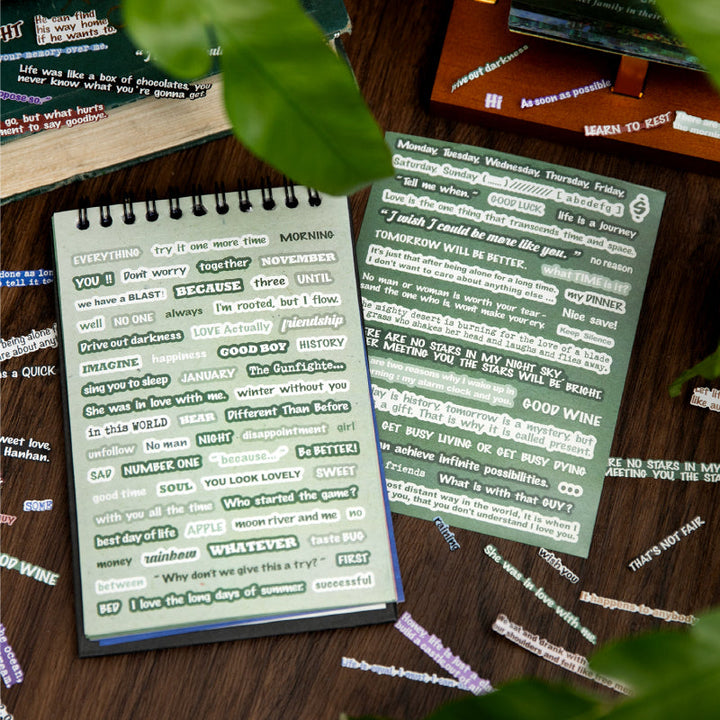 He can find
his way home
if he wants to.
your memory over me.
Life was like a box of chocolates, you
never know what you're gonna get.
go, but what hurts
ment to say goodbye.
Drive out darkness
Hi
As soon as possible
LEARN TO REST
EVERYTHING try it one more time MORNING
YOU !! Don't worry together NOVEMBER
we have a BLAST! BECAUSE three UNTIL
well NO ONE always I'm rooted, but I flow.
Drive out darkness LOVE Actually friendship
IMAGINE happiness GOOD BOY HISTORY
sing you to sleep JANUARY The Gunfighte...
She was in love with me. winter without you
in this WORLD HEAR Different Than Before
unfollow No man NIGHT disappointment girl
SAD NUMBER ONE "because..." Be BETTER!
good time SOUL YOU LOOK LOVELY SWEET
with you all the time Who started the game?
best day of life APPLE moon river and me no
money rainbow WHATEVER taste BUG
between "Why don't we give this a try?" FIRST
BED I love the long days of summer. successful
Monday, Tuesday, Wednesday, Thursday, Friday,
Saturday, Sunday (......) ////////// [ abcdefg ]
"Tell me when." GOOD LUCK life is a journey
Love is the one thing that transcends time and space.
"I wish I could be more like you." no reason
TOMORROW WILL BE BETTER. what TIME is it?
It's just that after being alone for a long time,
I don't want to care about anything else ... my DINNER
No man or woman is worth your tear-
sand the one who is, won't make your cry. Nice save!
Keep Silence
the mighty desert is burning for the love of a blade
grass who shakes her head and laughs and flies away.
ERE ARE NO STARS IN MY NIGHT SKY,
ER MEETING YOU THE STARS WILL BE BRIGHT.
are two reasons why I wake up in
orning : my alarm clock and you. GOOD WINE
day is history, tomorrow is a mystery, but
a gift. That is why it is called present.
GET BUSY LIVING OR GET BUSY DYING
an achieve infinite possibilities.
friends What is with that GUY?
ost distant way in the world, It is when I
you, that you don't understand I love you.
done as lon
tell it to
being alone
are about any
s a QUICK
weet love,
Hanhan.
SOME
OOD WINE
RE NO STARS IN MY
MEETING YOU THE STA
raining
She was in love with me.
wish you
THAT'S NOT FAIR
I happens to anybod
We sat and drank with
our shoulders and felt like free me